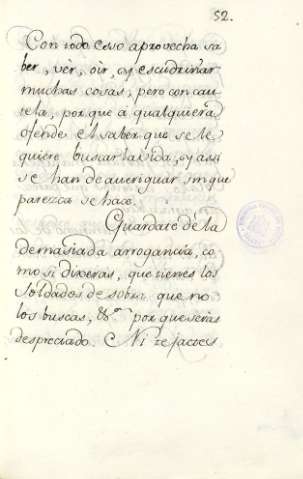 52.
Con todo esso aprovecha sa
ber, vèr, oìr, y escudriñar
muchas cosas, pero con cau
tela, porque à qualquiera
ofende el saber que se le
quiere buscar la vida, y assi
se han de averiguar sin que
parezca se hace.
Guardate de la
demasiada arrogancia, co,
mo si dixeras, que tienes los
soldados de sobra, que no
los buscas, &ª. porque seràs
despreciado. Ni te jactes